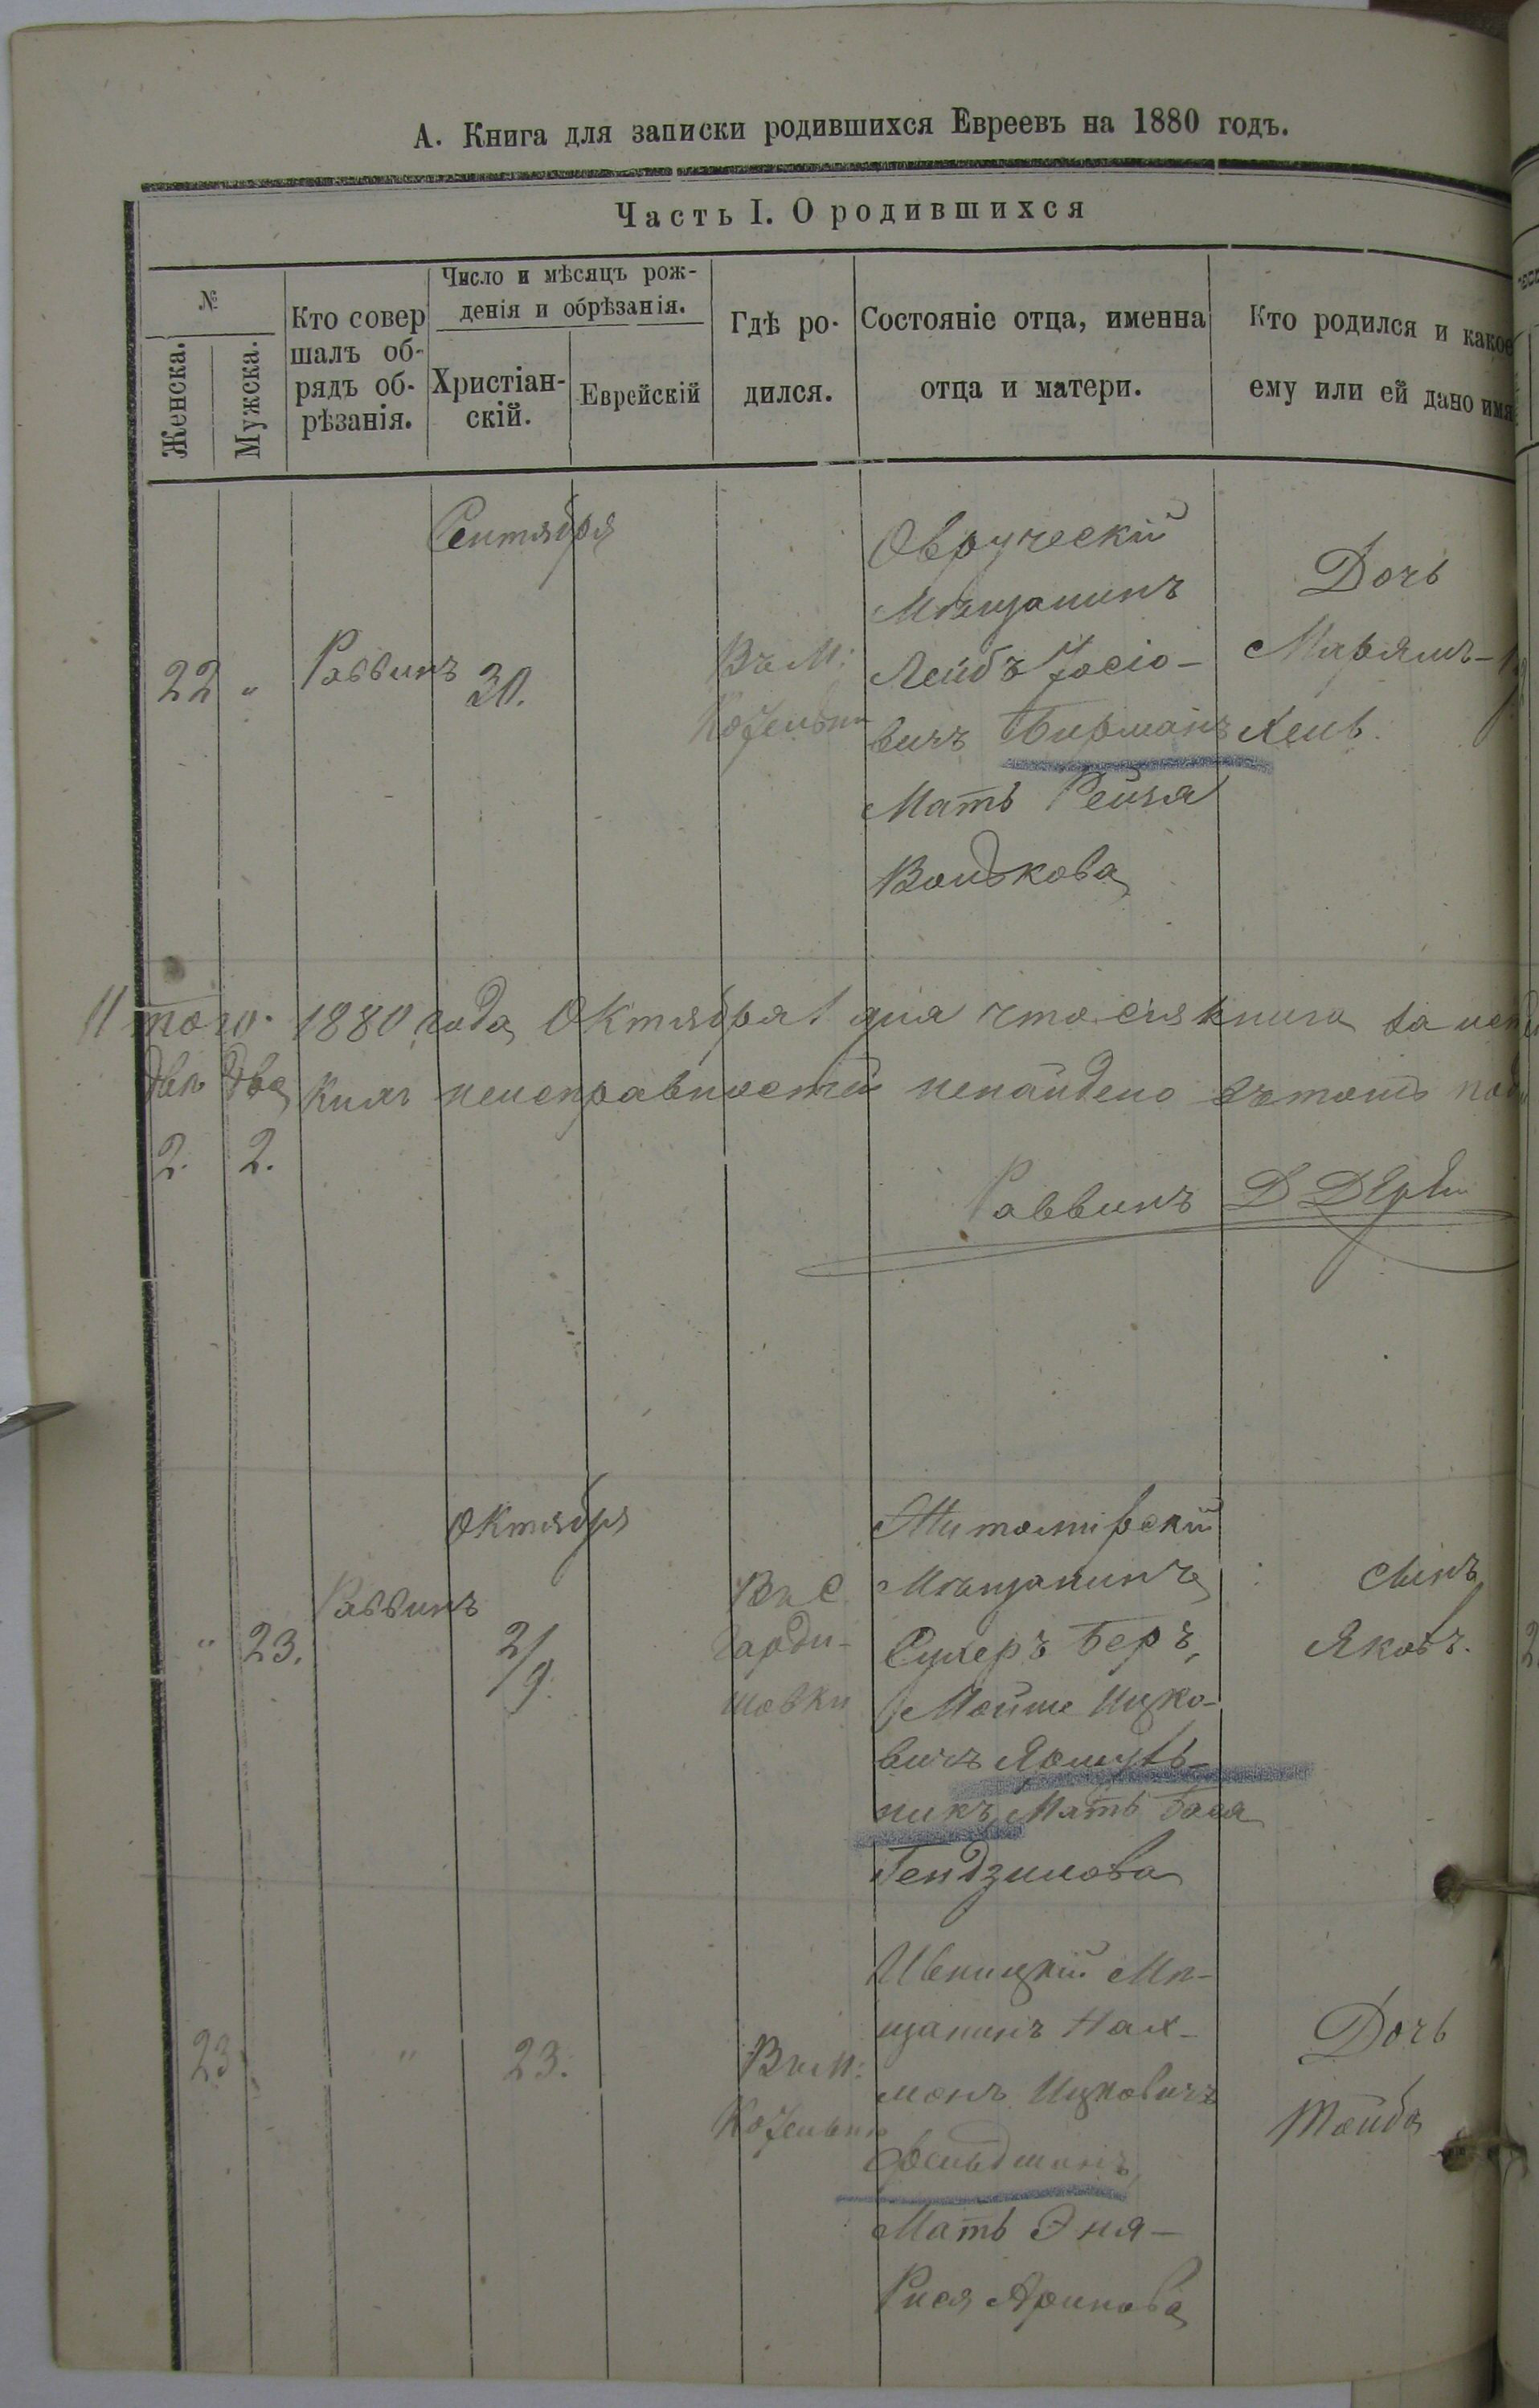 А. Книга для записки родившихся Евреевъ на 1880 годъ.
Часть I. О родившихся
№
Женска.
Мужска.
Кто совер
шалъ об-
рядъ об-
рѣзанія.
Число и мѣсяцъ рож-
денія и обрѣзанія.
Христіан-
скій.
Еврейскій
Гдѣ ро-
дился.
Состояніе отца, именна
отца и матери.
Кто родился и какое
ему или ей дано имя
22
"
Раввинъ
Сентября
30.
Въ М:
Овруческій
Мѣщанинъ
Лейбъ Іосіо-
вичъ Бирманъ
Мать Рейзя
Волькова
Дочь
Марьямъ-
Итого. 1880 года Октября 1 дня что сія книга за
двѣ два кимъ неисправностей ненайдено въ томъ
2. 2.
Раввинъ
"
23.
Раввинъ
Октября
2/9.
Въ С
Горди-
шовки
Житомірскій
Мѣщанинъ
Сухеръ Беръ,
Мойше Ицко-
вичъ
никъ, Мать Бася
Сынъ
Яковъ.
23
"
23.
Въ М:
Ивницкій Мѣ-
щанинъ Нах-
манъ Ицковичъ
Фельдманъ,
Мать Эня-
Рися Аронова
Дочь
Тойба